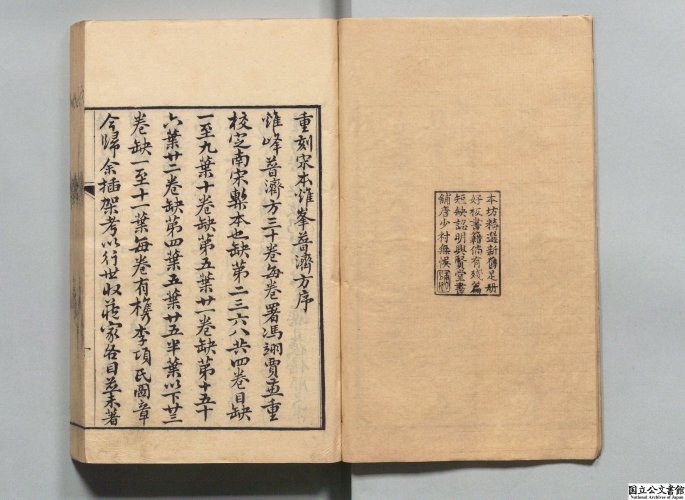 本坊精選新舊足册
好板書籍倘有殘篇
短缺認明興賢堂書
鋪唐少村無悞
重刻宋本雞峯普濟方序
雞峰普濟方三十卷每卷署馮翊賈兼重
校定南宋槧本也缺第二三六八共四卷目缺
一至九葉十卷缺第五葉廿一卷缺第十五十
六葉廿二卷缺第四葉五葉廿五半葉以下廿三
卷缺一至十一葉每卷有檇李項氏圖章
今歸余插架考以行世收藏家各目並未著
国立公文書館
National Archives of Japan